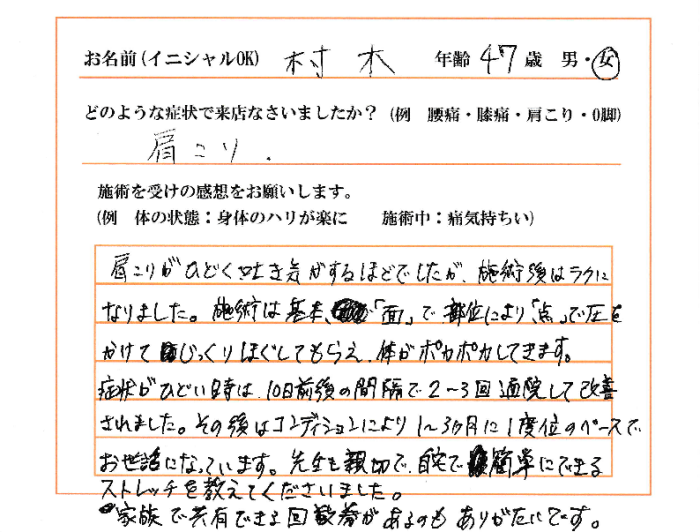 お名前(イニシャルOK) 村木 年齢 47 歳 男・女
どのような症状で来店なさいましたか?(例 腰痛・膝痛・肩こり・O脚)
肩こり.
施術を受けの感想をお願いします。
(例 体の状態:身体のハリが楽に 施術中:痛気持ちい)
肩こりがひどく吐き気がするほどでしたが、施術後はラクに
なりました。施術は基本、「面」で、部位により「点」で圧を
かけてじっくりほぐしてもらえ、体がポカポカしてきます。
症状がひどい時は、10日前後の間隔で2〜3回通院して改善
されました。その後はコンディションにより1〜3ヶ月に1度位のペースで
お世話になっています。先生も親切で、自宅で簡単にできる
ストレッチを教えてくださいました。
家族で共有できる回数券があるのもありがたいです。